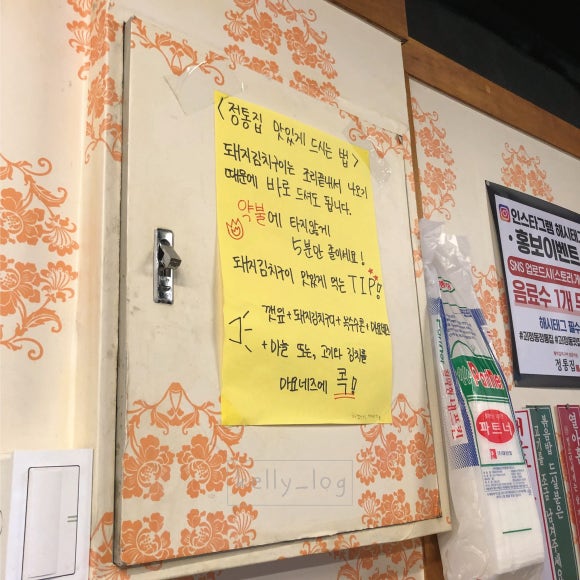 <정통집 맛있게 드시는 법>
돼지김치구이는 조리끝내서 나오기
때문에 바로 드셔도 됩니다.
약불에 타지않게
5분만 졸이세요!
돼지김치구이 맛있게 먹는 TIP!!
깻잎 + 돼지김치구이 +
+ 마늘 또는, 고기와 김치를
마요네즈에 콕!!
kelly_log
인스타그램 해시태그
홍보이벤트
SNS 업로드시(스토리가
음료수 1개 무
해시태그 필수
정통집
파트너